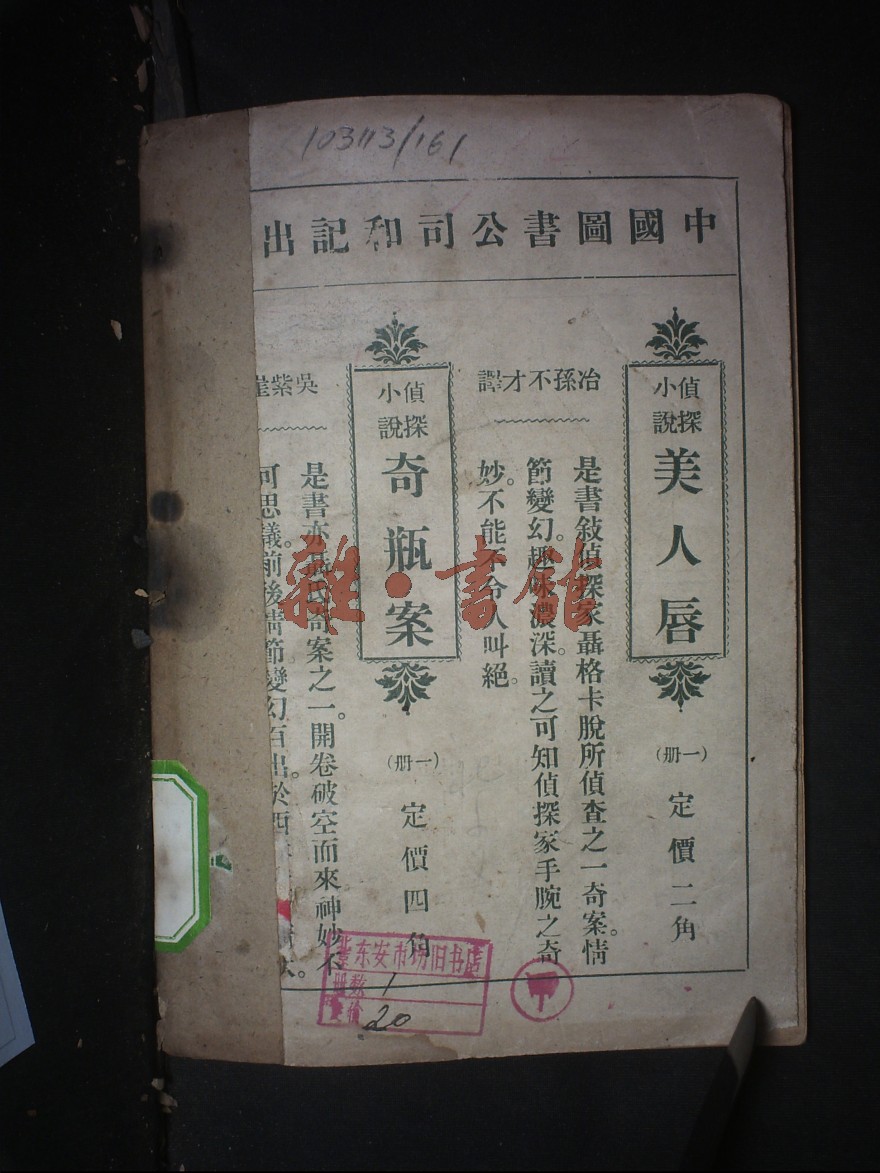 103113/161
中國圖書公司和記出
偵探
小說
美人唇
(一册)
定價二角
是書敍偵探家聶格卡脫所偵查之一奇案。情
節變幻。趣味濃深。讀之可知偵探家手腕之奇
妙。不能不令人叫絕。
冶孫不才譯
偵探
小說
奇瓶案
(一册)
定價四角
是書亦聶氏奇案之一。開卷破空而來神妙不
可思議。前後情節變幻百出。於西
吳紫崖
雜·書館
东安市场旧书店
册数 1
售價 20